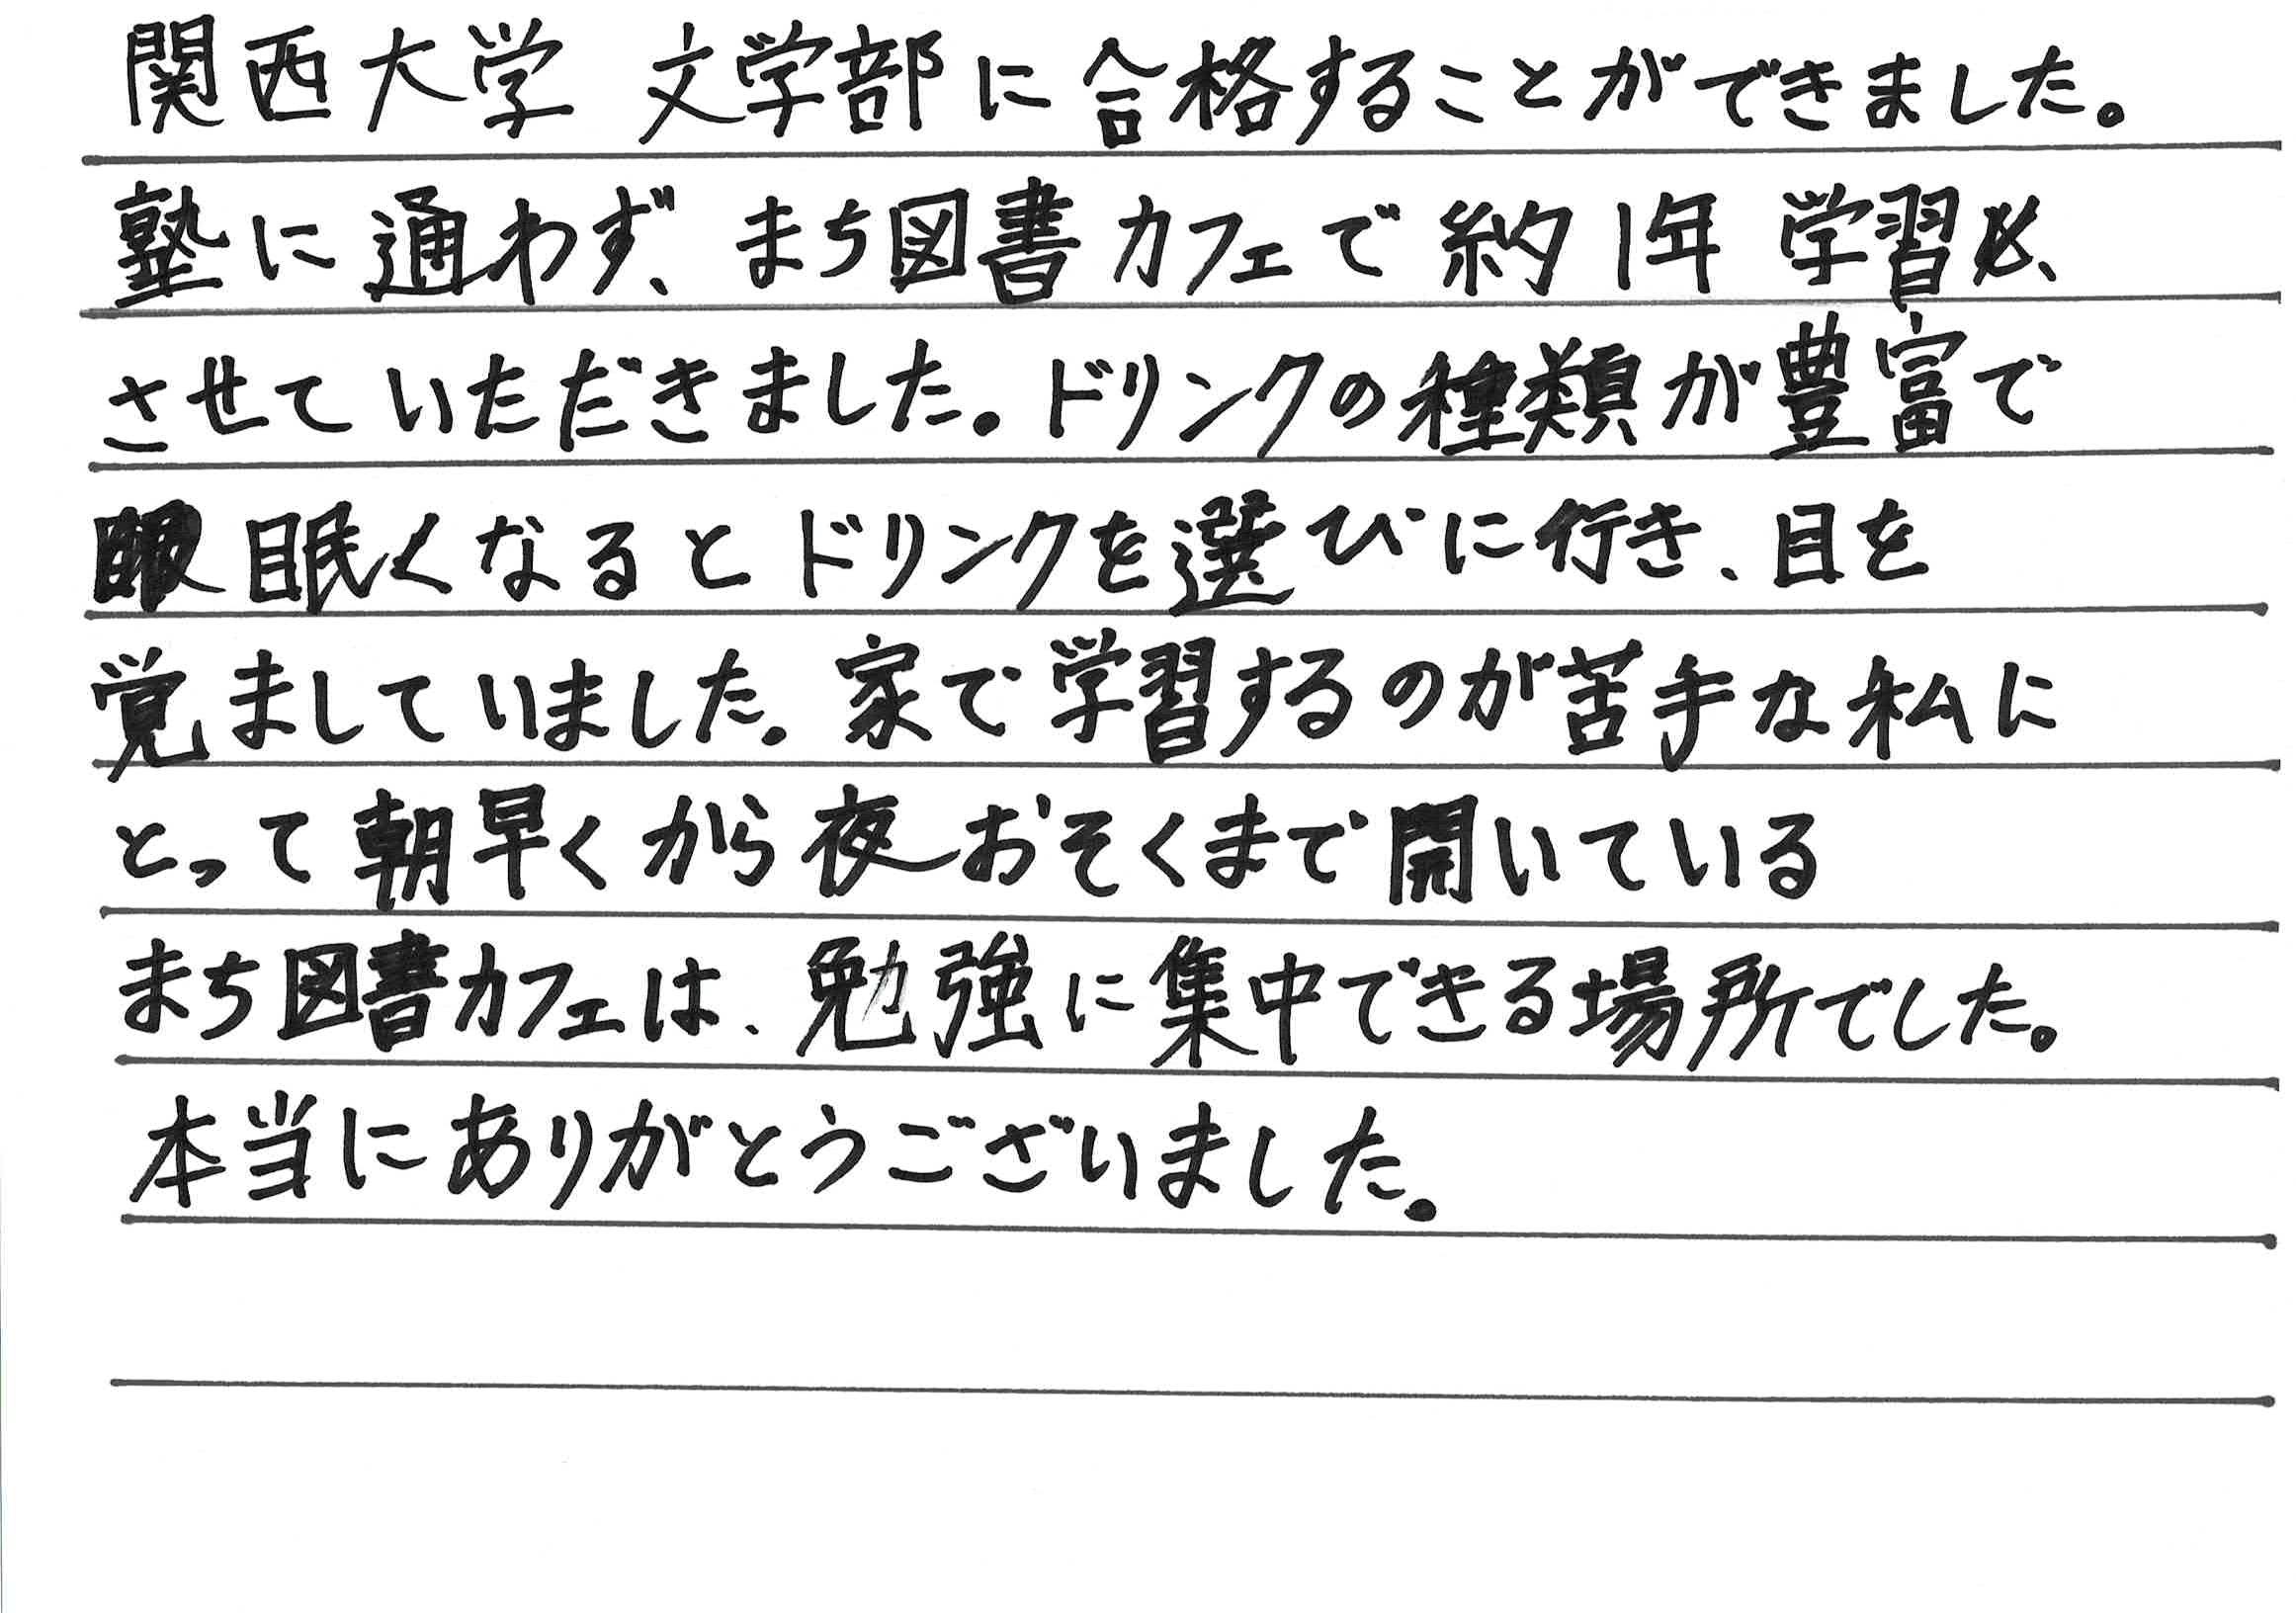 関西大学 文学部に合格することができました。
塾に通わず、まち図書カフェで約1年 学習
させていただきました。ドリンクの種類が豊富で
眠くなるとドリンクを選びに行き、目を
覚ましていました。家で学習するのが苦手な私に
とって朝早くから夜おそくまで開いている
まち図書カフェは、勉強に集中できる場所でした。
本当にありがとうございました。